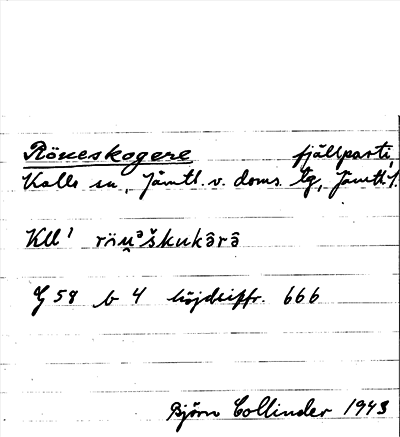 Röneskogere fjällparti,
Kalls sn, Jämtl. v. doms. tg, Jämtl l.
Kll¹ rön̯ᵊškukârâ
G 58 b 4 höjdsiffr. 666
Björn Collinder 1943